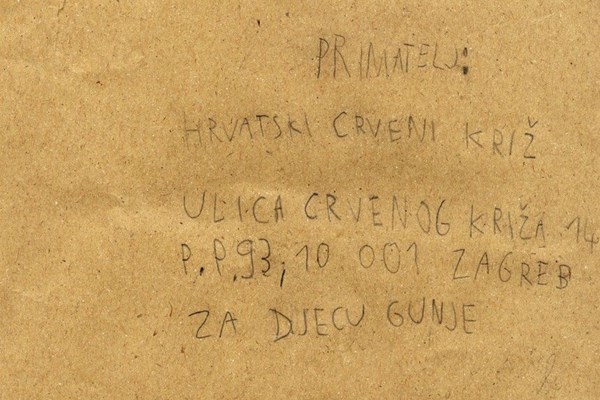 PRIMATELJ:
HRVATSKI CRVENI KRIŽ
ULICA CRVENOG KRIŽA 14
P.P.93, 10 001 ZAGREB
ZA DJECU GUNJE